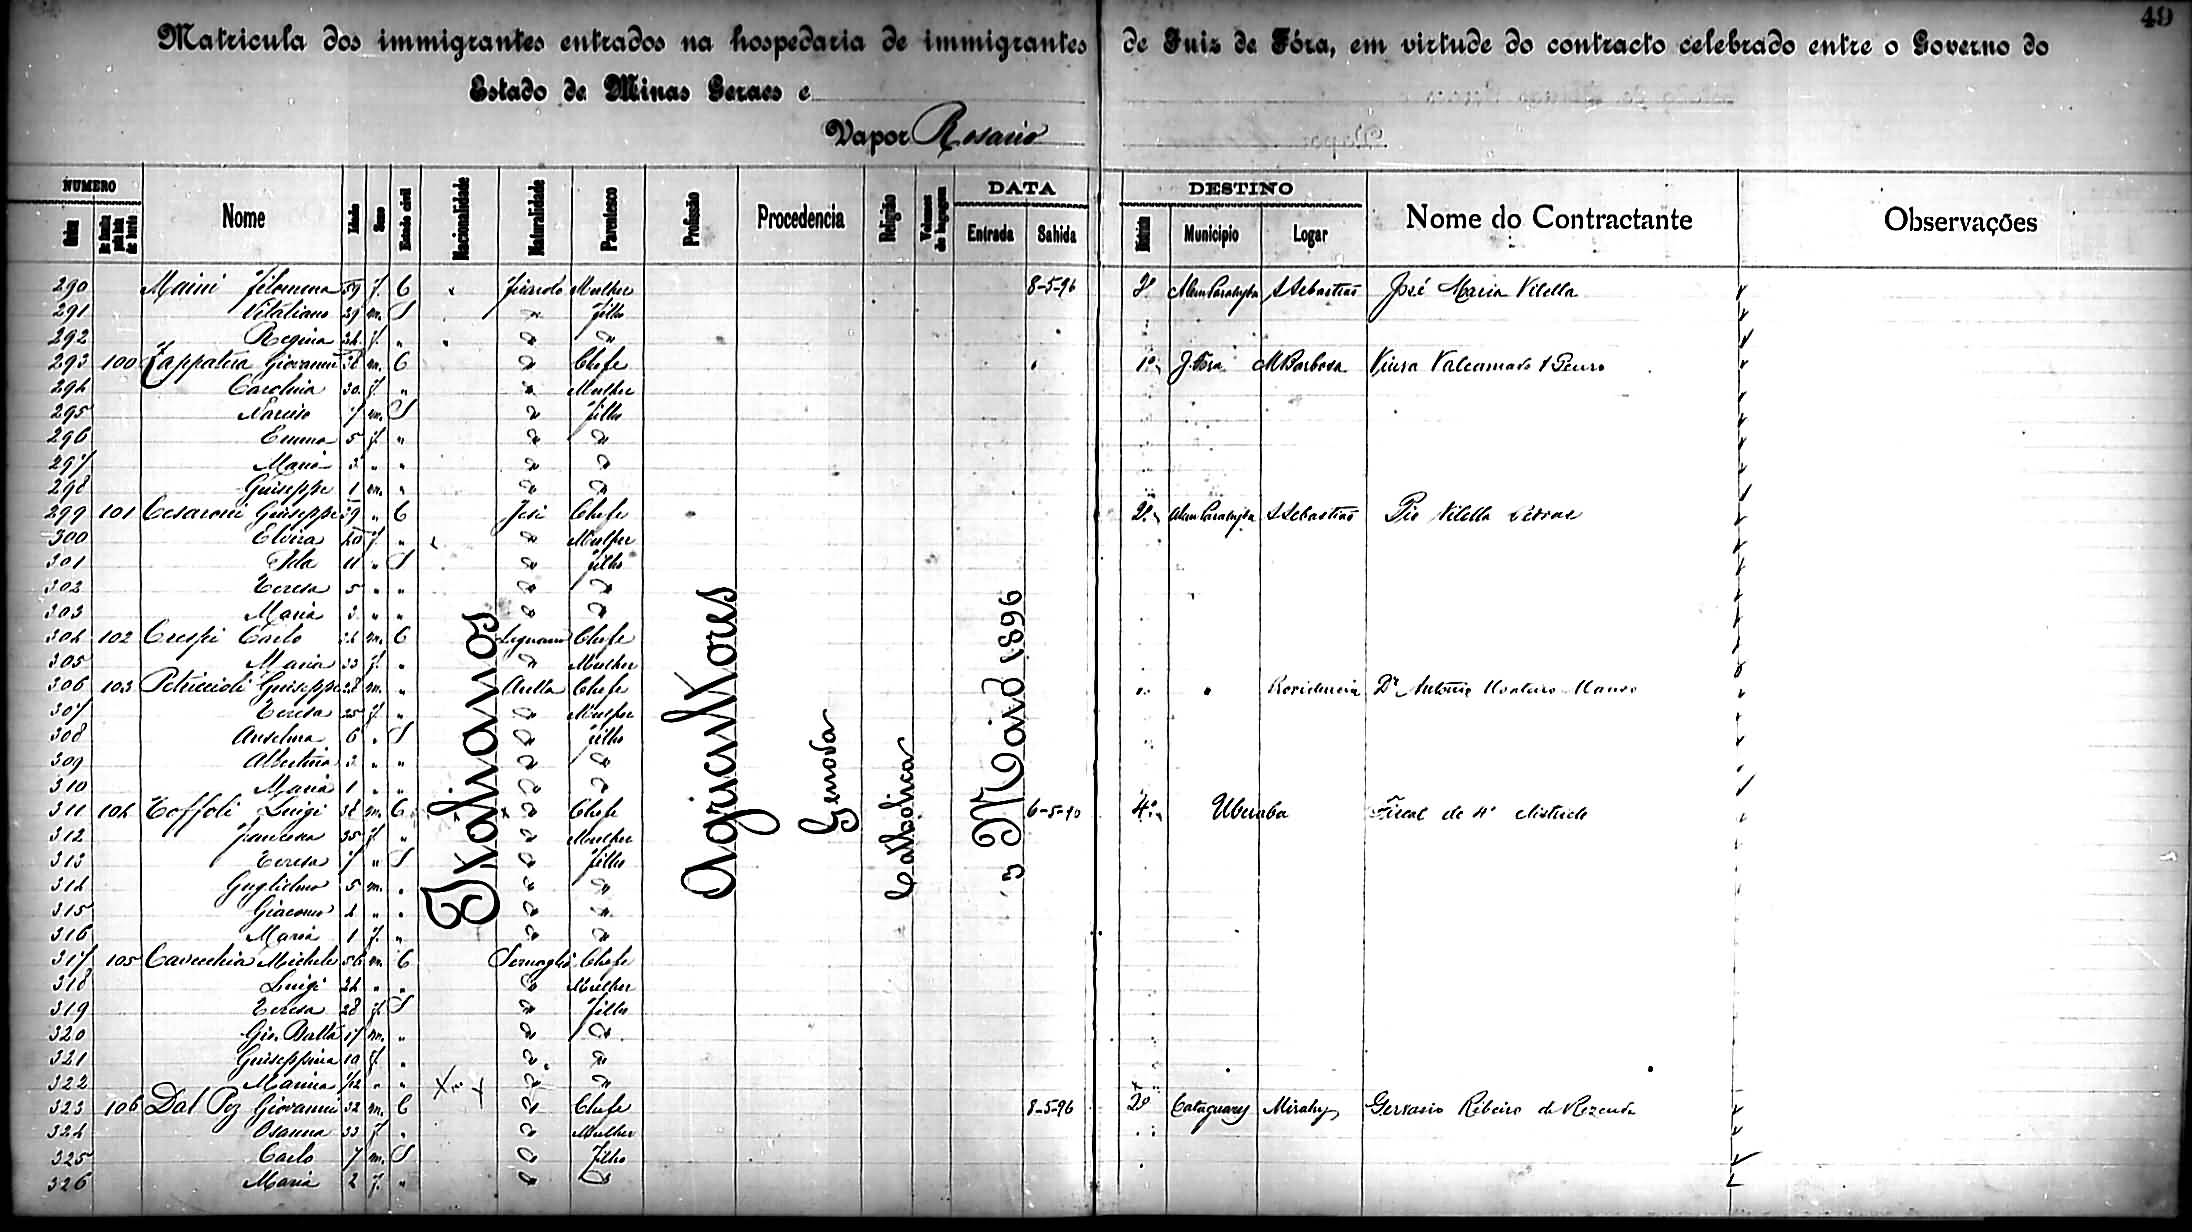 49
Matricula dos immigrantes entrados na hospedaria de immigrantes de Juiz de Fóra, em virtude do contracto celebrado entre o Governo do
Estado de Minas Geraes e
Vapor Rosario
NUMERO Nome Idade Sexo Estado civil Nacionalidade Naturalidade Parentesco Profissão Procedencia Religião Volumes de bagagem DATA Entrada Sahida DESTINO Municipio Logar Nome do Contractante Observações
Italianos Agricultores Genova Catholica 3 Maio 1896
290 Maini Filomena 59 f. C Mulher 8-5-96 2º Alem Parahyba S Sebastião José Maria Vilella
291 Vitaliano 29 m. S " filho
292 Regina 24 f. " " "
293 100 Zappaterra Giovanni 38 m. C " Chefe 1º J. Fora M Barbosa
294 Carolina 30 f. " " Mulher
295 Narciso 7 m. S " filho
296 Emma 5 f. " " "
297 Maria 3 " " " "
298 Guiseppe 1 m. " " "
299 101 Cesaroni Guiseppe 39 " C Jesi Chefe 2º Alem Parahyba S Sebastião Pio Vilella
300 Elvira f. " " Mulher
301 Ida 11 " S " filho
302 Teresa 5 " " " "
303 Maria 3 " " " "
304 102 Crespi Carlo 34 m. C Legnano Chefe
305 Maria 33 f. " " Mulher
306 103 Petriccioli Guiseppe 28 m. " Aulla Chefe " " Residencia Dr Antonio
307 Teresa 25 f. " " Mulher
308 Anselma 6 " S " filho
309 Albertina 3 " " " "
310 Maria 1 " " " "
311 104 Toffoli Luigi 38 m. C " Chefe 6-5-96 4º Uberaba Fiscal do 4º districto
312 Francesca 35 f. " " Mulher
313 Teresa 7 " S " filho
314 Guglielmo 5 m. " " "
315 Giacomo 2 " " " "
316 Maria 1 f. " " "
317 105 Cavecchia Michele 56 m. C Chefe
318 Luigi 24 " " " Mulher
319 Teresa 28 f. S " filho
320 Gio. Batta 17 m. " " "
321 Guiseppina 10 f. " " "
322 Marina " " " "
323 106 Dal Poz Giovanni 32 m. C " Chefe 8-5-96 2º Cataguazes Mirahy Gervasio Ribeiro de Rezende
324 Osanna 33 f. " " Mulher
325 Carlo 7 m. S " filho
326 Maria 2 f. " " "